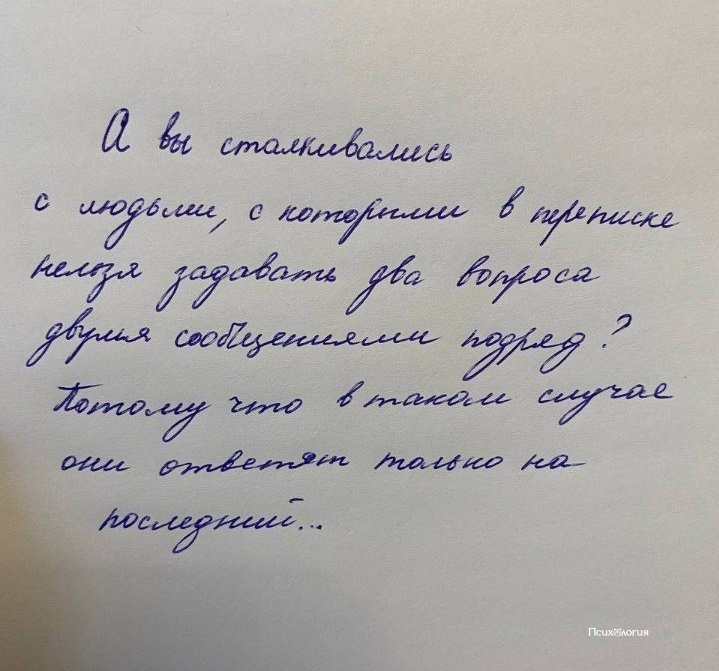 А вы сталкивались
с людьми, с которыми в переписке
нельзя задавать два вопроса
двумя сообщениями подряд?
Потому что в таком случае
они ответят только на
последний...
Психология